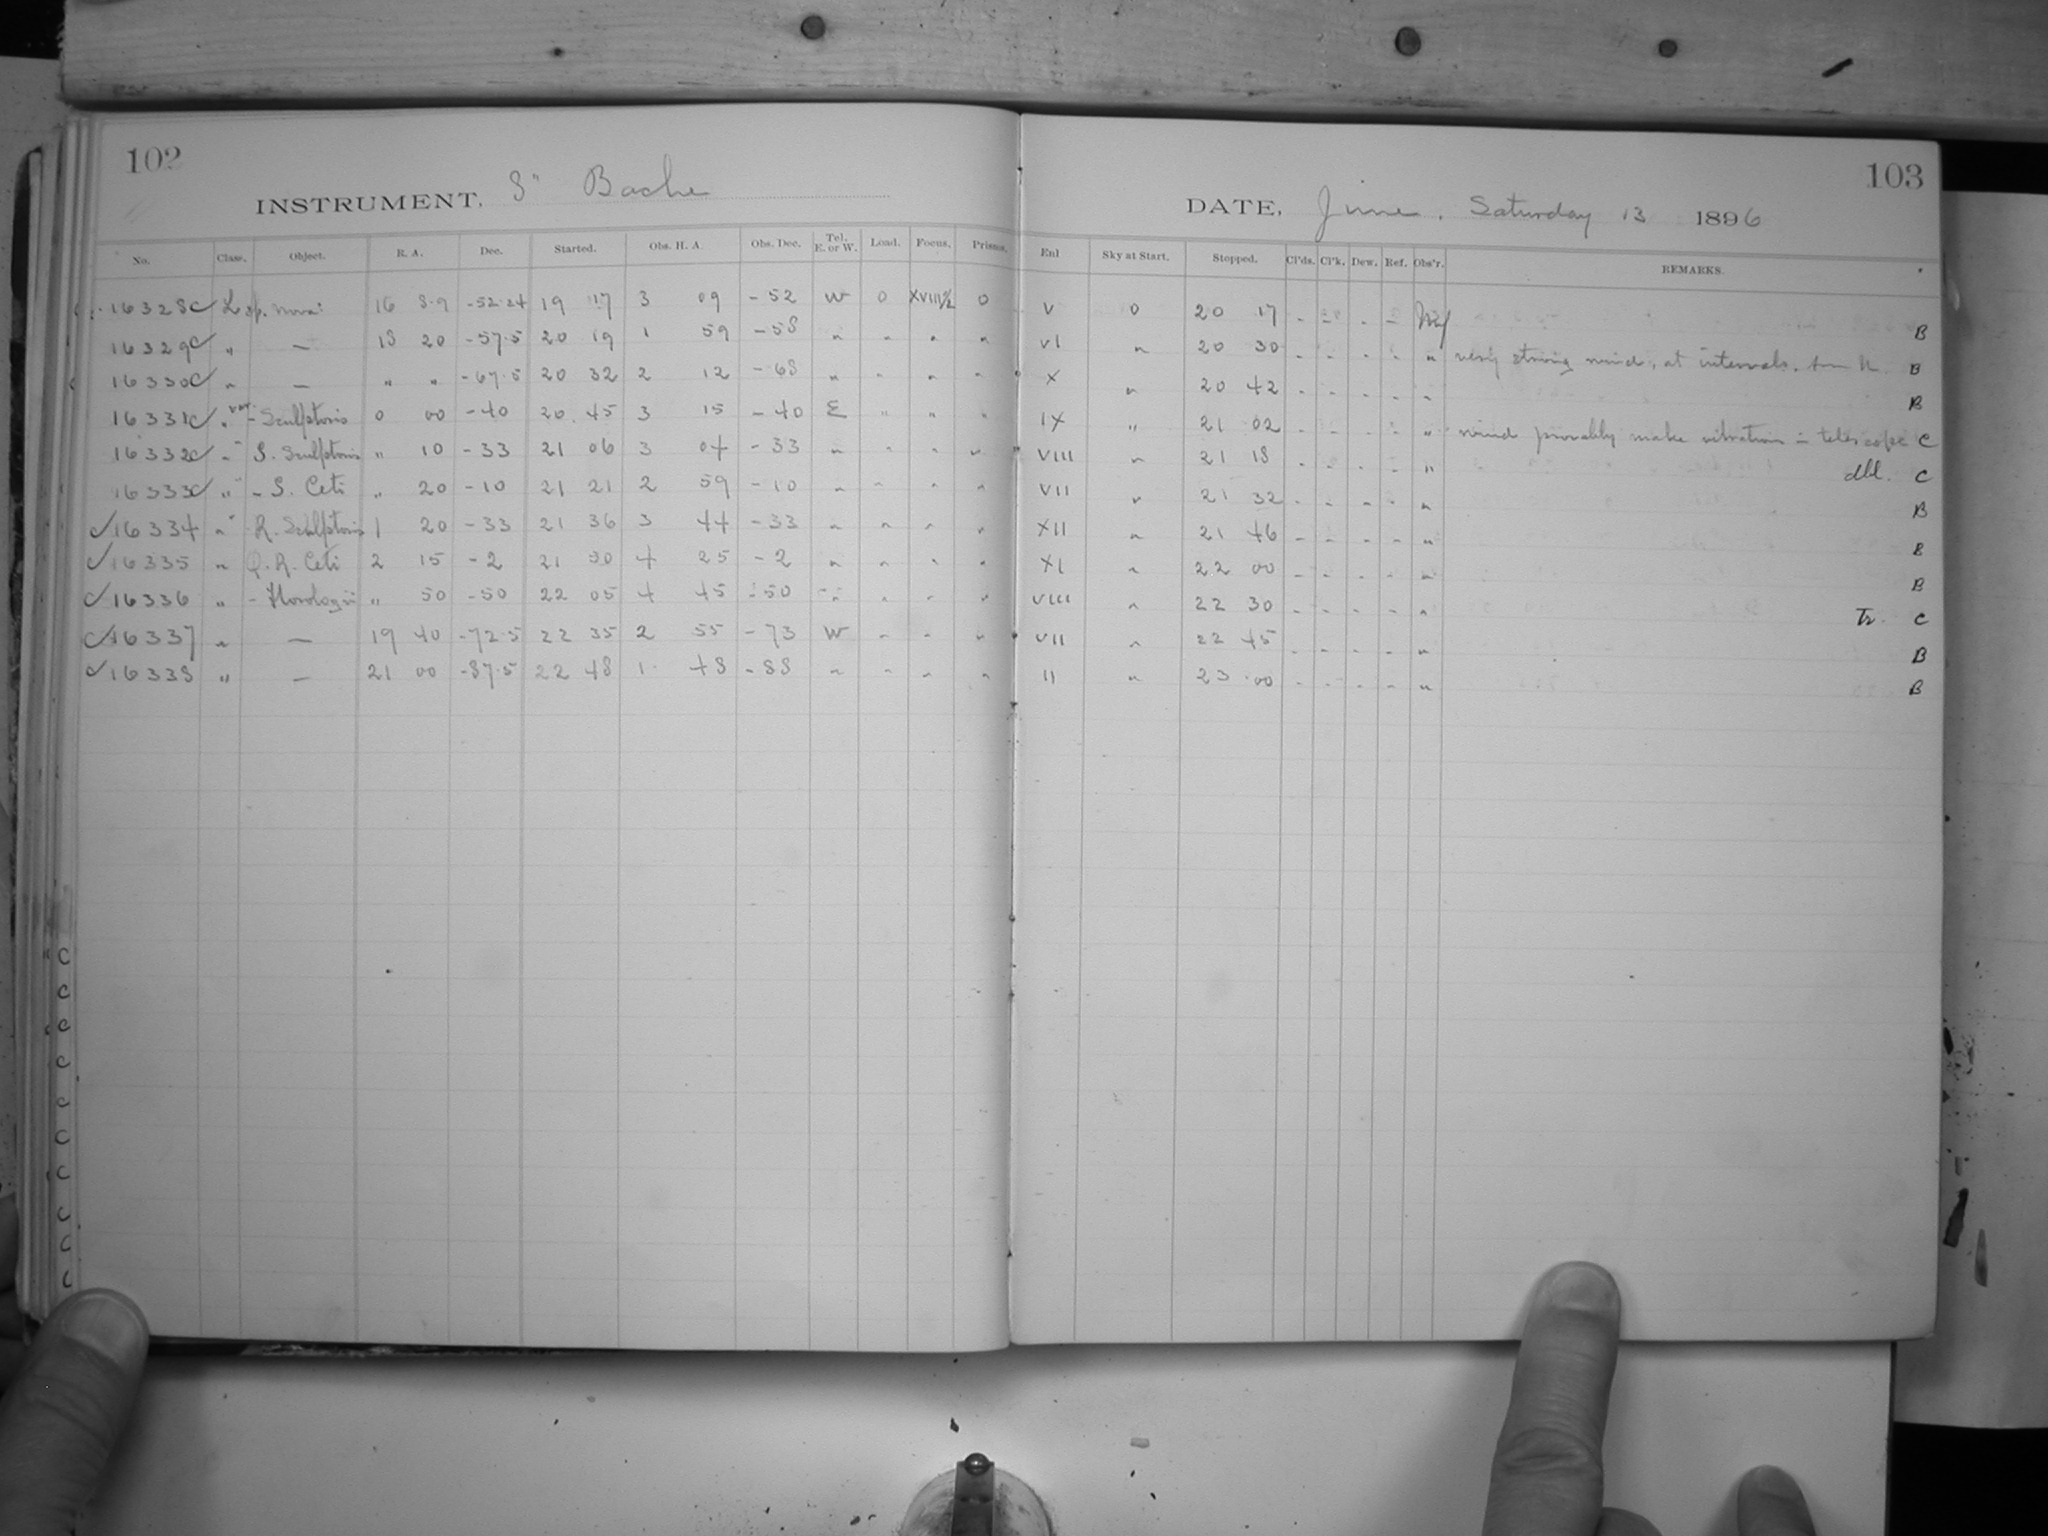 102
INSTRUMENT, 8" Bache
No. Class. Object. R. A. Dec. Started. Obs. H. A. Obs. Dec. Tel. E. or W. Load. Focus. Prisms.
16328 C L sp. nova: 16 8.9 -52.24 19 17 3 09 -52 W 0 XVIII1/2 0
16329 C " — 18 20 -57.5 20 19 1 59 -58 " " " "
16330 C " — " " -67.5 20 32 2 12 -68 " " " "
16331 C " var. - Sculptoris 0 00 -40 20 45 3 15 -40 E " " "
16332 C " " S. Sculptoris " 10 -33 21 06 3 04 -33 " " " "
16333 C " " - S. Ceti " 20 -10 21 21 2 59 -10 " " " "
16334 " " R. Sculptoris 1 20 -33 21 36 3 44 -33 " " " "
16335 " R. Ceti 2 15 -2 21 50 4 25 -2 " " " "
16336 " - Horologii " 50 -50 22 05 4 45 -50 " " " "
16337 " — 19 40 -72.5 22 35 2 55 -73 W " " "
16338 " — 21 00 -87.5 22 48 1 48 -88 " " " "
103
DATE, June, Saturday 13 1896
Enl Sky at Start. Stopped. Cl'ds. Cl'k. Dew. Ref. Obs'r. REMARKS.
V 0 20 17 - - - - B
VI " 20 30 - - - - " very strong wind, at intervals, B
X " 20 42 - - - - " B
IX " 21 02 - - - - " wind provably make vibration in telescope C
VIII " 21 18 - - - - " dbl. C
VII " 21 32 - - - - " B
XII " 21 46 - - - - " B
XI " 22 00 - - - - " B
VIII " 22 30 - - - - " Tr. C
VII " 22 45 - - - - " B
II " 23 00 - - - - " B
C
C
C
C
C
C
C
C
C
C